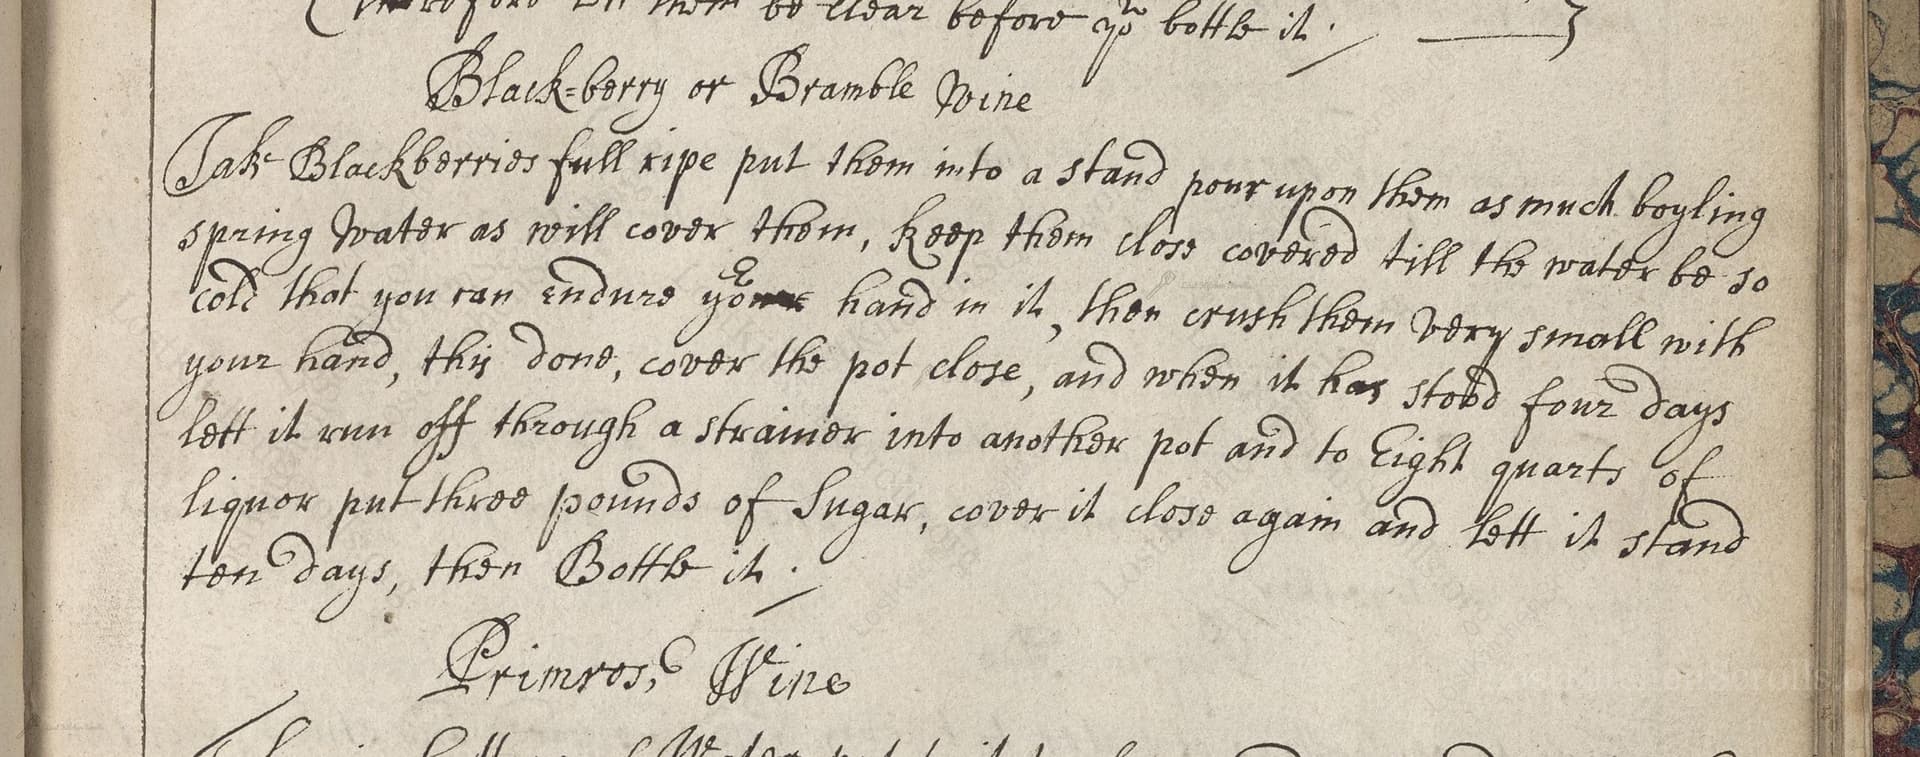 therefore let them be clear before yo^u bottle it.
Black=berry or Bramble Wine
Take Blackberries full ripe put them into a stand pour upon them as much boyling
spring water as will cover them, keep them close covered till the water be so
cold that you can endure your hand in it, then crush them very small with
your hand, this done, cover the pot close, and when it has stood four days
lett it run off through a strainer into another pot and to Eight quarts of
liquor put three pounds of Sugar, cover it close again and lett it stand
ten days, then Bottle it.
Primrose Wine